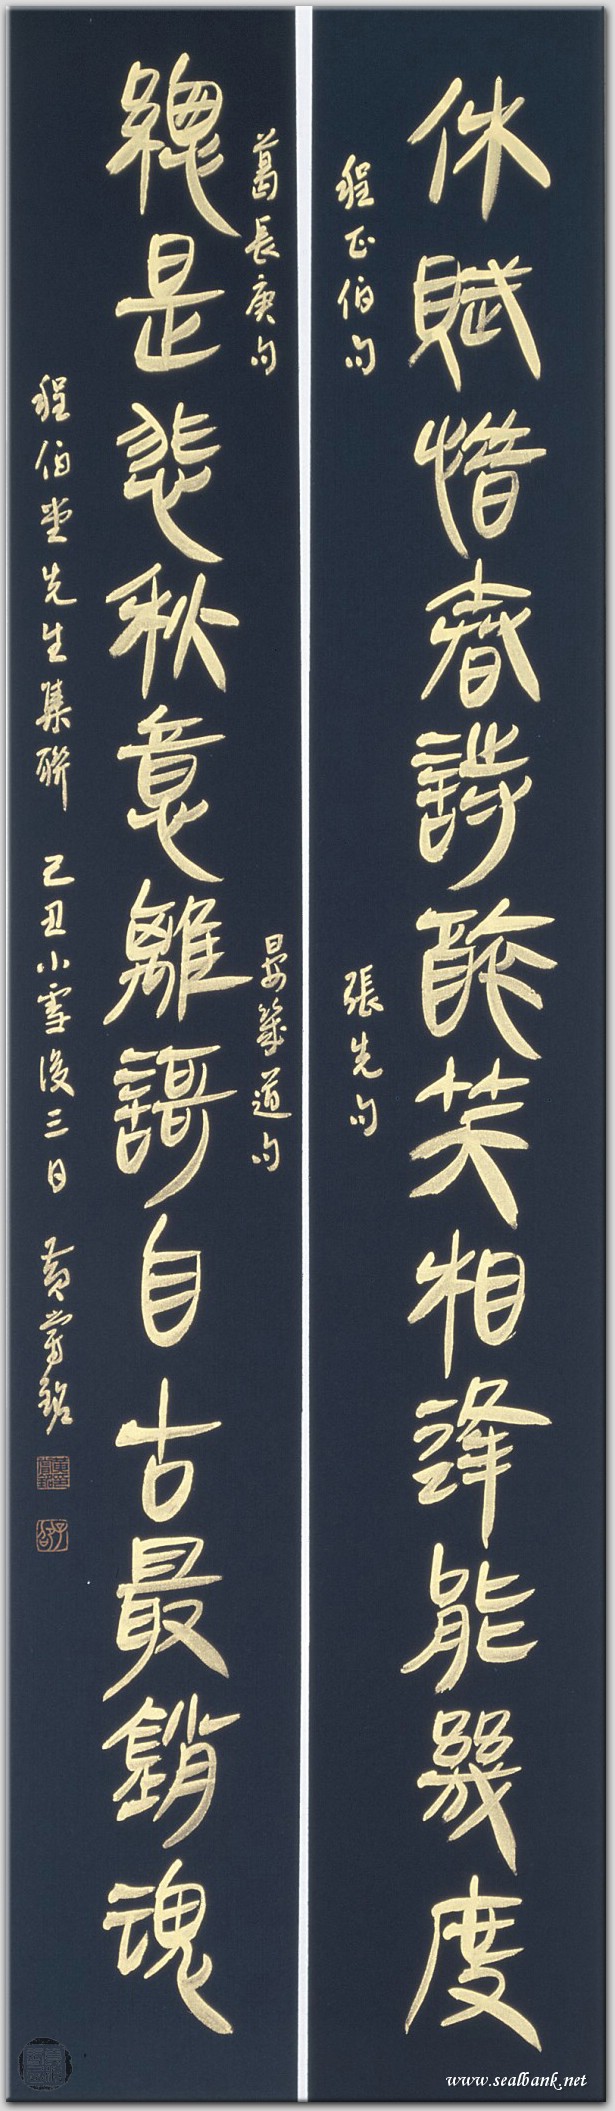 休賦惜春詩醉笑相逢能幾度
程正伯句
張先句
葛長庚句
晏幾道句
總是悲秋意離謌自古最銷魂
程伯堂先生集聯 己丑小雪後三日 黃嘗銘
www.sealbank.net